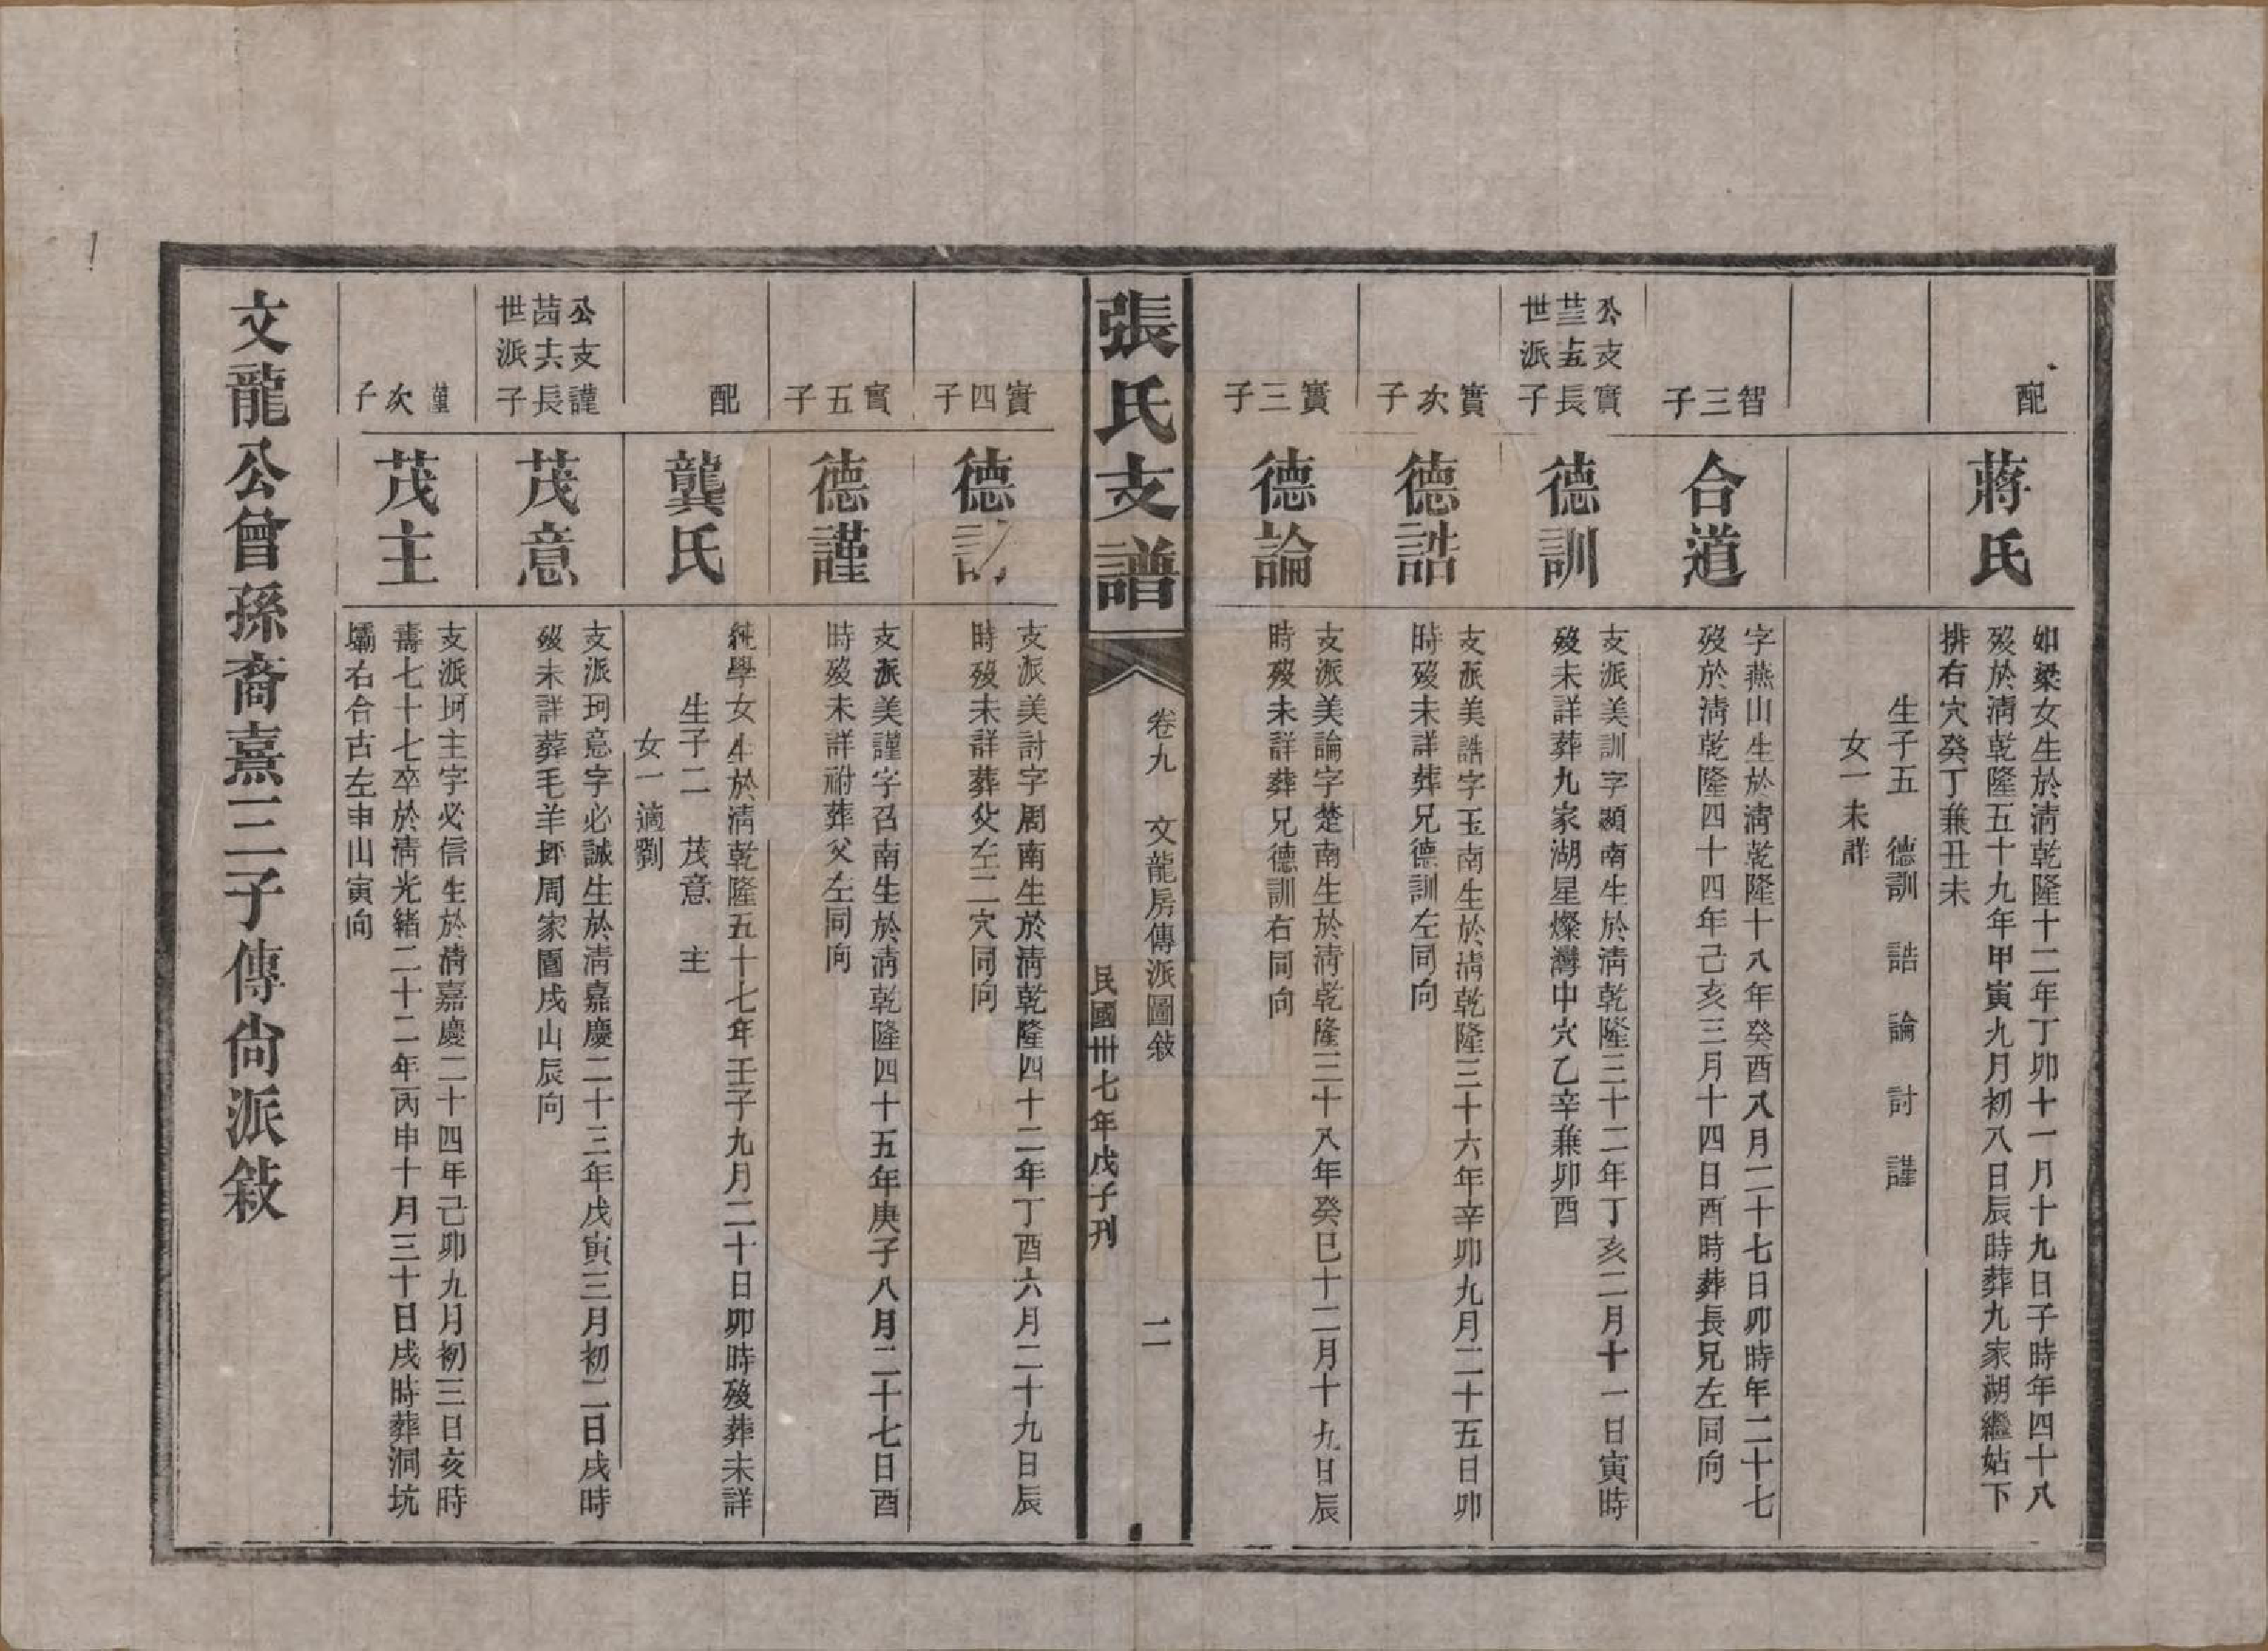 配
蔣氏
如梁女生於淸乾隆十二年丁卯十一月十九日子時年四十八
歿於淸乾隆五十九年甲寅九月初八日辰時葬九家湖繼姑下
排右穴癸丁兼丑未
生子五　德訓　誥　論　討　謹
女一未詳
智三子
合道
字燕山生於淸乾隆十八年癸酉八月二十七日卯時年二十七
歿於淸乾隆四十四年己亥三月十四日酉時葬長兄左同向
公支實
五長
世派子
德訓
支派美訓字顯南生於淸乾隆三十二年丁亥二月十一日寅時
歿未詳葬九家湖星燦灣中穴乙辛兼卯酉
實次子
德誥
支派美誥字玉南生於淸乾隆三十六年辛卯九月二十五日卯
時歿未詳葬兄德訓左同向
實三子
德論
支派美論字楚南生於淸乾隆三十八年癸巳十二月十九日辰
時歿未詳葬兄德訓右同向
張氏支譜
卷九　文龍房傳派圖敍　二
民國卅七年戊子刊
實四子
德討
支派美討字周南生於淸乾隆四十二年丁酉六月二十九日辰
時歿未詳葬父左二穴同向
實五子
德謹
支派美謹字召南生於淸乾隆四十五年庚子八月二十七日酉
時歿未詳祔葬父左同向
配
龔氏
純學女生於淸乾隆五十七年壬子九月二十日卯時歿葬未詳
生子二　茂意　主
女一適劉
公支謹
長
世派子
茂意
支派珂意字必誠生於淸嘉慶二十三年戊寅三月初二日戌時
歿未詳葬毛羊坪周家園戌山辰向
謹次子
茂主
支派珂主字必信生於淸嘉慶二十四年己卯九月初三日亥時
壽七十七卒於淸光緒二十二年丙申十月三十日戌時葬洞坑
壩右合古左申山寅向
文龍公曾孫裔熹三子傳尙派敍